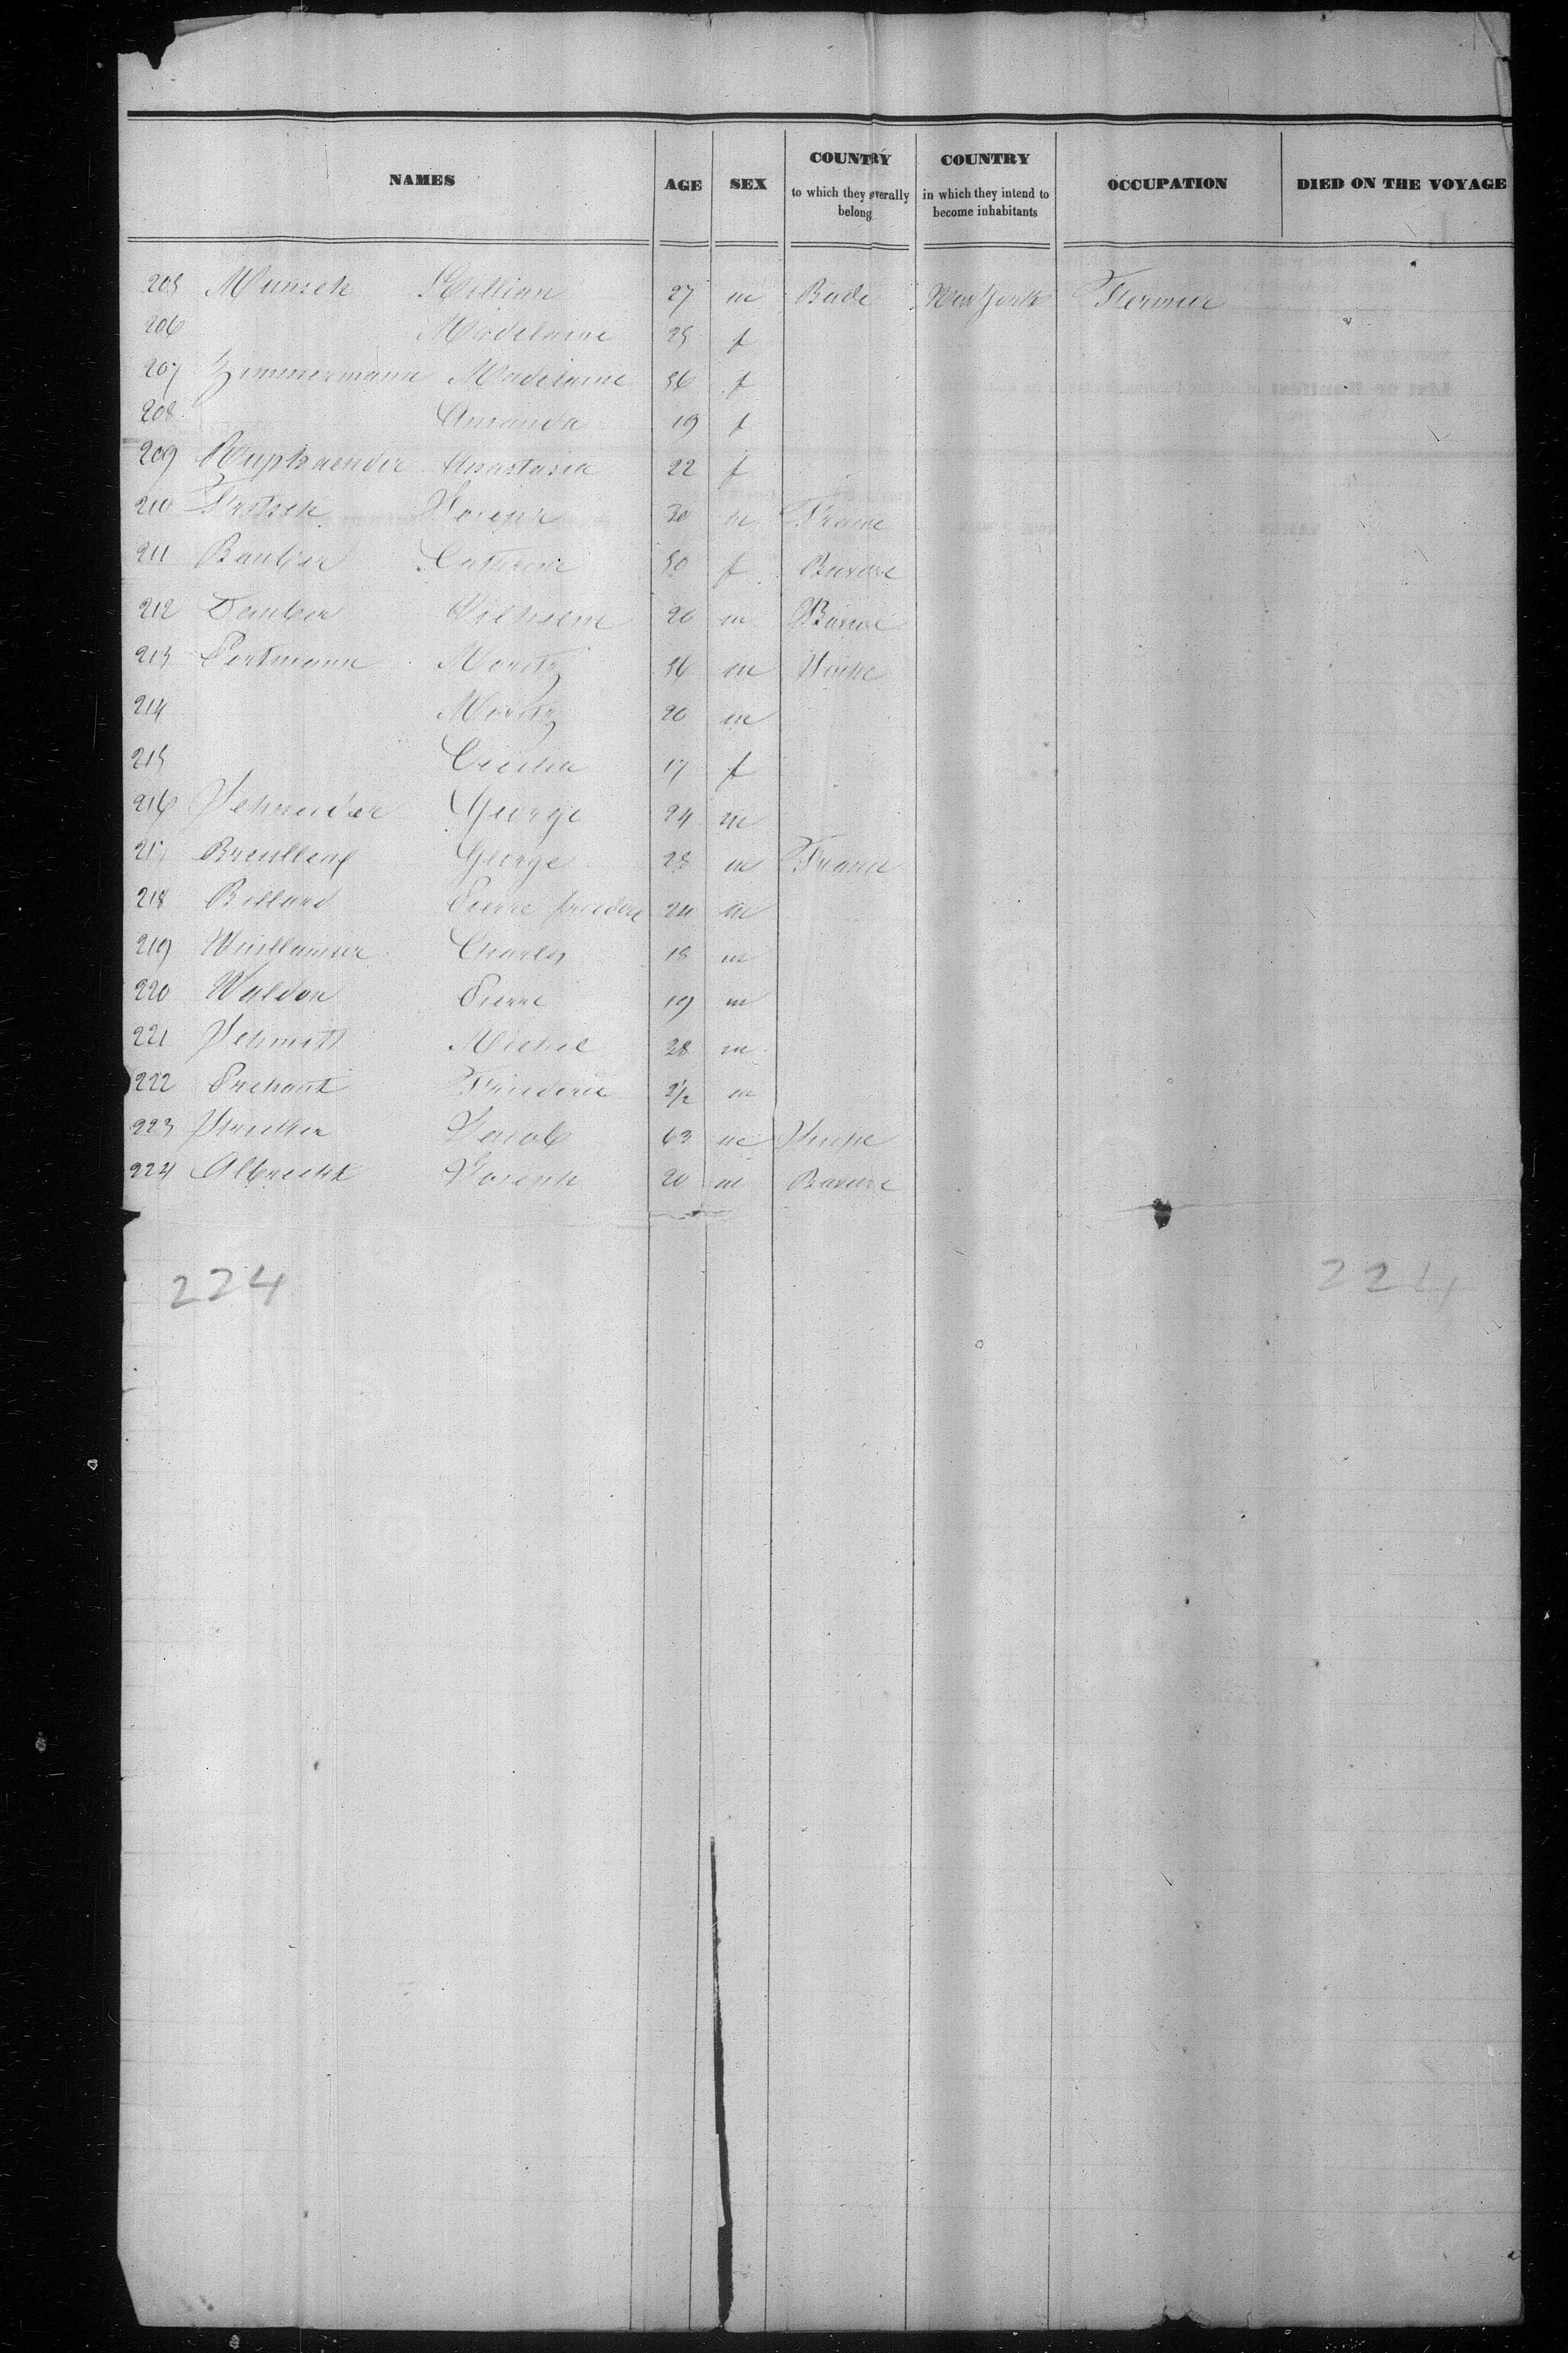 NAMES AGE SEX COUNTRY to which they severally belong COUNTRY in which they intend to become inhabitants OCCUPATION DIED ON THE VOYAGE
205 Munsch Killian 27 m Bade New York Fermier
206 Madelaine 25 f
207 Zimmermann Madelaine 56 f
208 Amanda 19 f
209 Anastasia 22 f
210 Fritsch Joseph 30 m France
211 Catherine 50 f Baviere
212 Wilhelm 20 m
213 Portmann Moritz 56 m
214 Moritz 20 m
215 17 f
216 Schneider George 24 m
217 George 25 m France
218 Billard Pierre 24 m
219 Charles 18 m
220 Waldon Pierre 19 m
221 Schmitt Michel 38 m
222 Prehant Friederic 2 1/2 m
223 Jacob 63 m
224 Albrecht Joseph 20 m Baviere
224 224